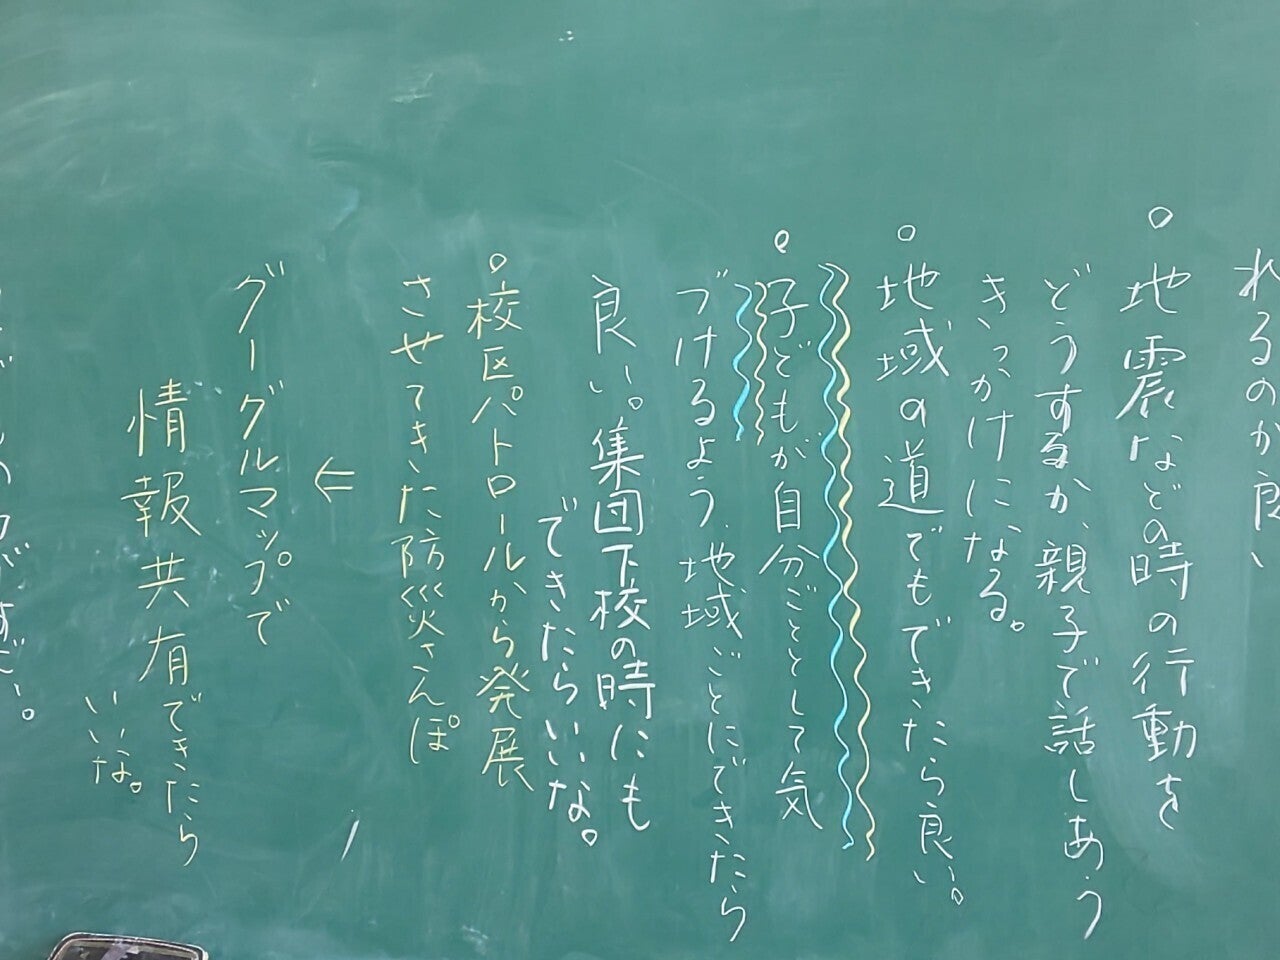 れるのか良い
○地震などの時の行動を
どうするか、親子で話しあう
きっかけになる。
○地域の道でもできたら良い。
○子どもが自分ごととして気
づけるよう、地域ごとにできたら
良い。集団下校の時にも
できたらいいな。
○校区パトロールから発展
させてきた防災さんぽ
⇐
グーグルマップで
情報共有できたら
いいな。